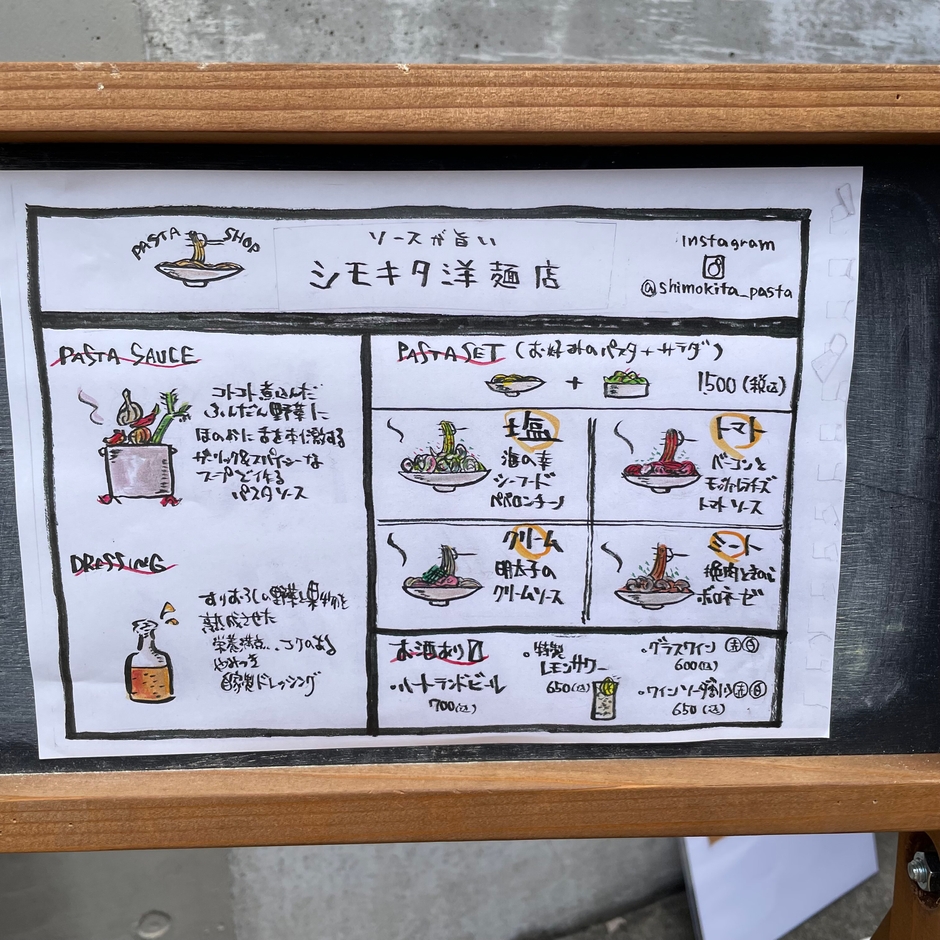 PASTA SHOP
ソースが旨い
シモキタ洋麺店
Instagram
@shimokita_pasta
PASTA SAUCE
コトコト煮込んだ
ふんだん野菜に
ほのかに舌を刺激する
ガーリック&スパイシーな
スープで作る
パスタソース
DRESSING
すりおろし野菜と果物を
熟成させた
栄養満点、コクのある
やみつき
自家製ドレッシング
PASTA SET (お好みのパスタ+サラダ)
+
1500(税込)
塩
海の幸
シーフード
ペペロンチーノ
トマト
ベーコンと
モッツァレラチーズ
トマトソース
クリーム
明太子の
クリームソース
ミート
挽肉ときのこ
ボロネーゼ
お酒あり〼
・ハートランドビール
700(込)
・特製
レモンサワー
650(込)
・グラスワイン 赤白
600(込)
・ワインソーダ割り赤白
650(込)